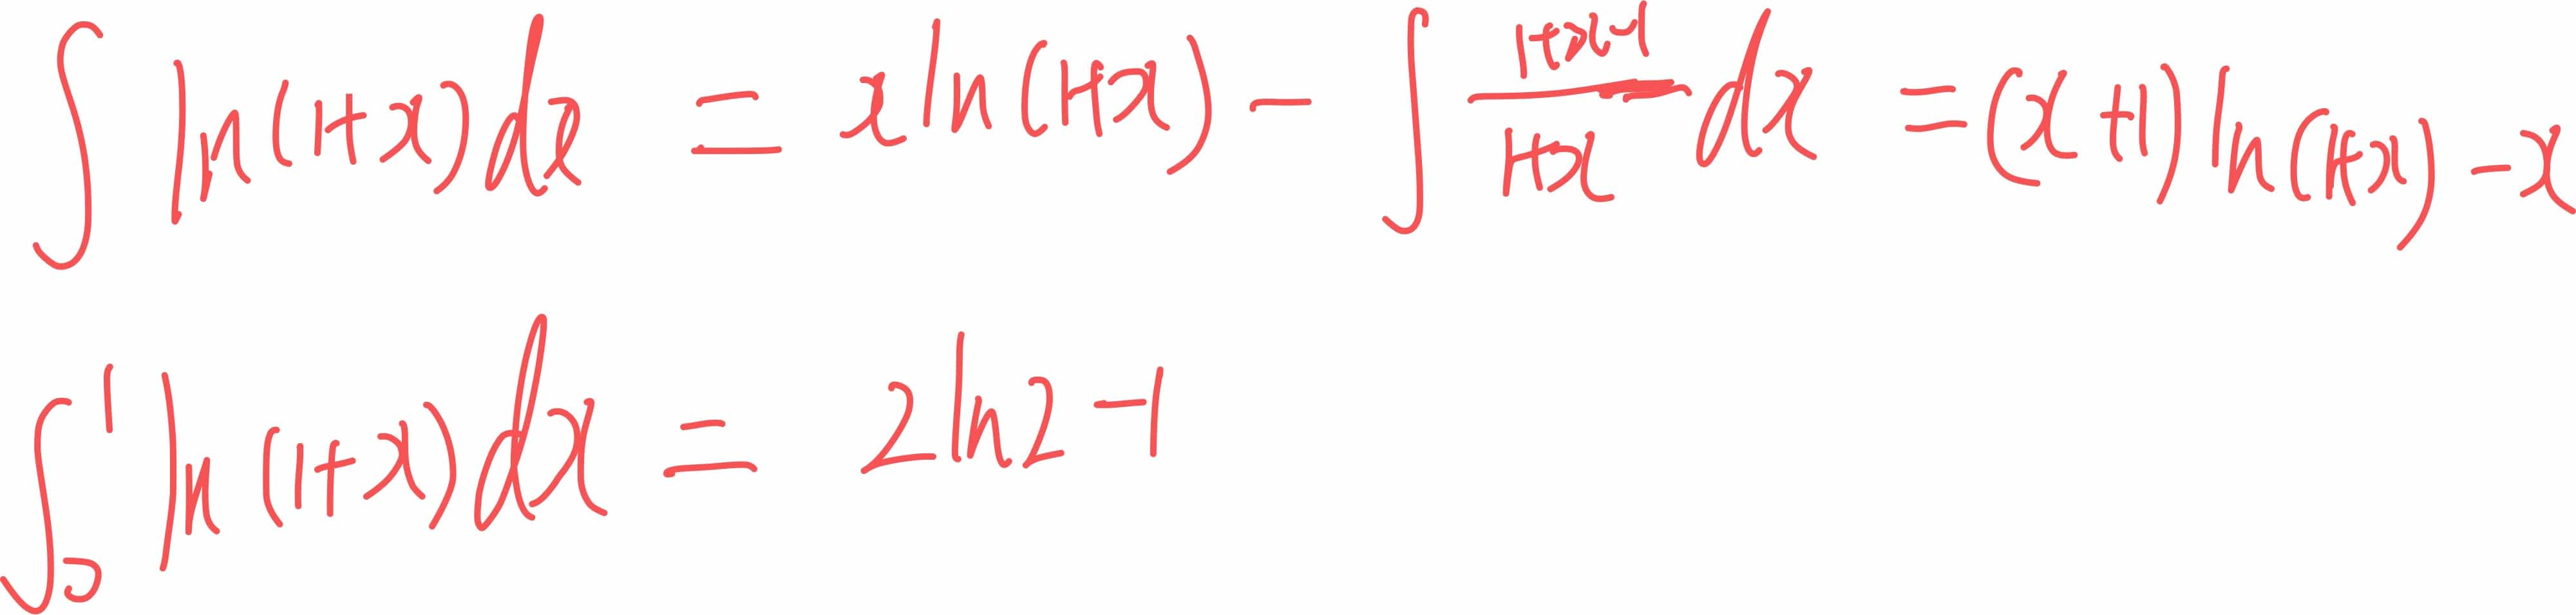 ∫ ln(1+x)dx = x ln(1+x) - ∫ \frac{1+x-1}{1+x} dx = (x+1)ln(1+x) - x
∫_0^1 ln(1+x)dx = 2ln2-1